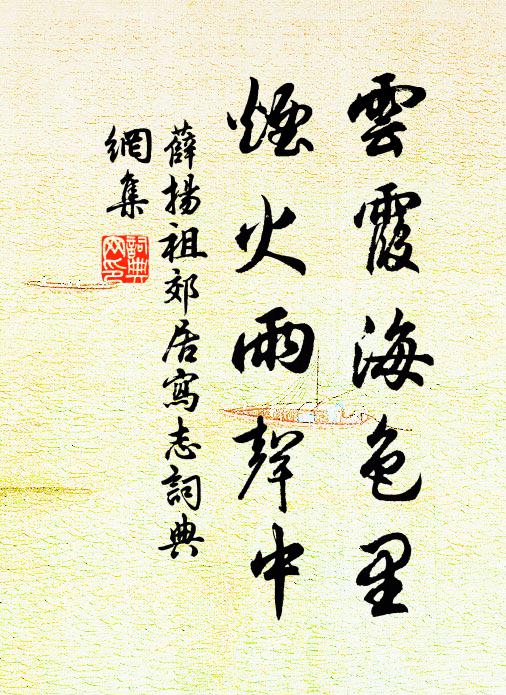 雲霞海色里
煙火雨聲中
薛揚祖郊居寫志詞典
網集
詞典
网印